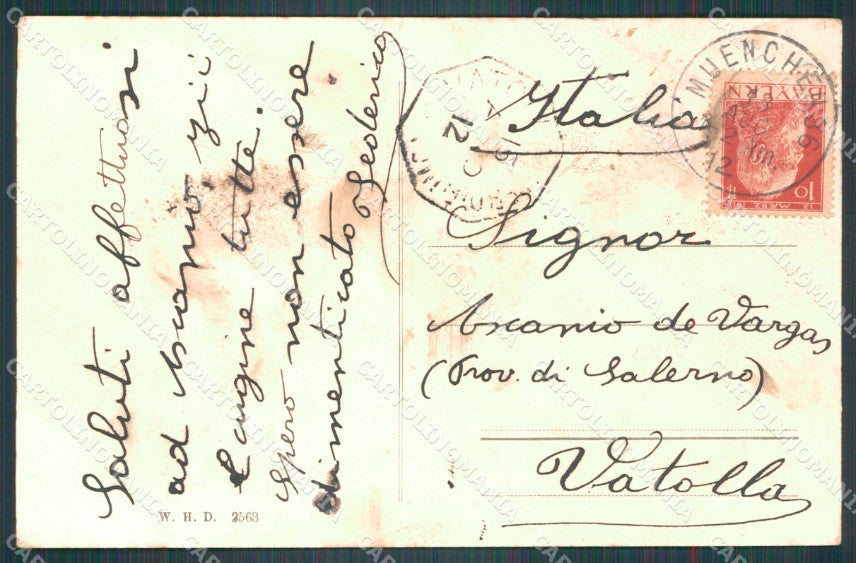 Saluti affettuosi
ad Ascanio, zii
e cugine tutte.
Spero non essere
dimenticato Federico
W. H. D. 2563
Italia
Signor
Ascanio de Vargas
(Prov. di Salerno)
Vatolla
MUENCHEN 6
12
BAYERN
10
12
CARTOLINOMANIA